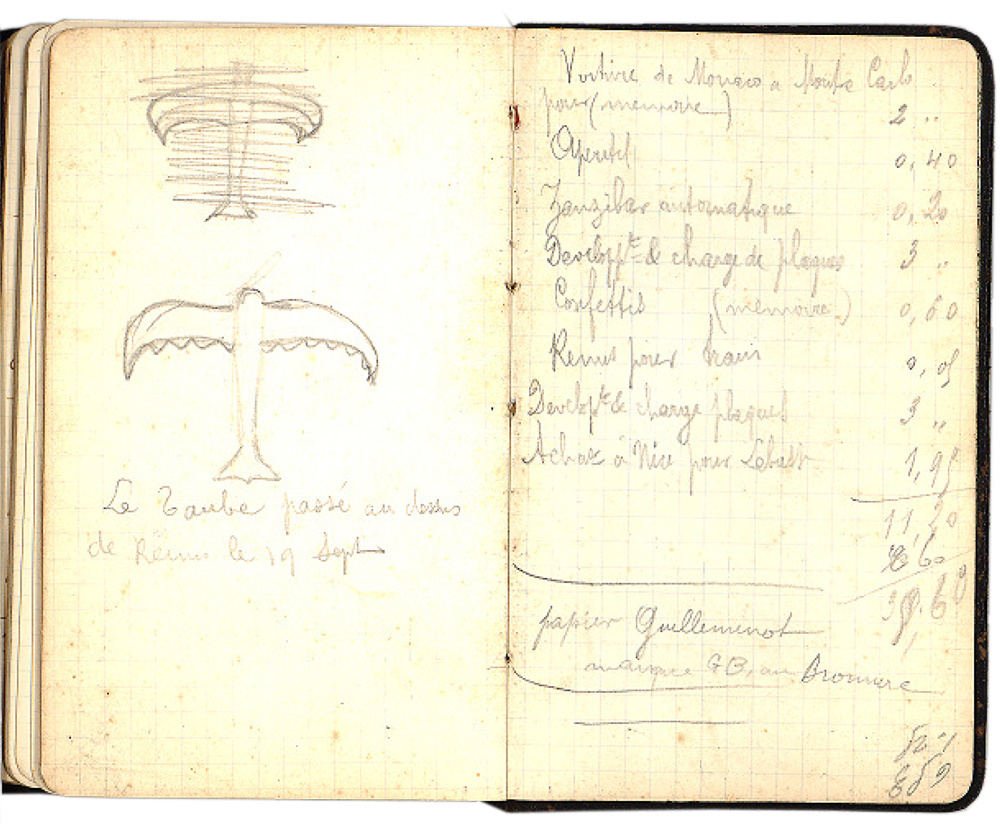 Le Taube passé au dessus
de Reims le 19 Sept
Voiture de Monaco a Monte Carlo
pour (memoire) 2 "
Aperitif 0,40
Zanzibar automatique 0,20
Developpt & charge de plaques 3 "
Confettis (memoire) 0,60
pour 0,05
Developt & charge plaques 3 "
Achat à Nice pour 1,95
11,20
60
papier Guilleminot
marque GB, au Bromure